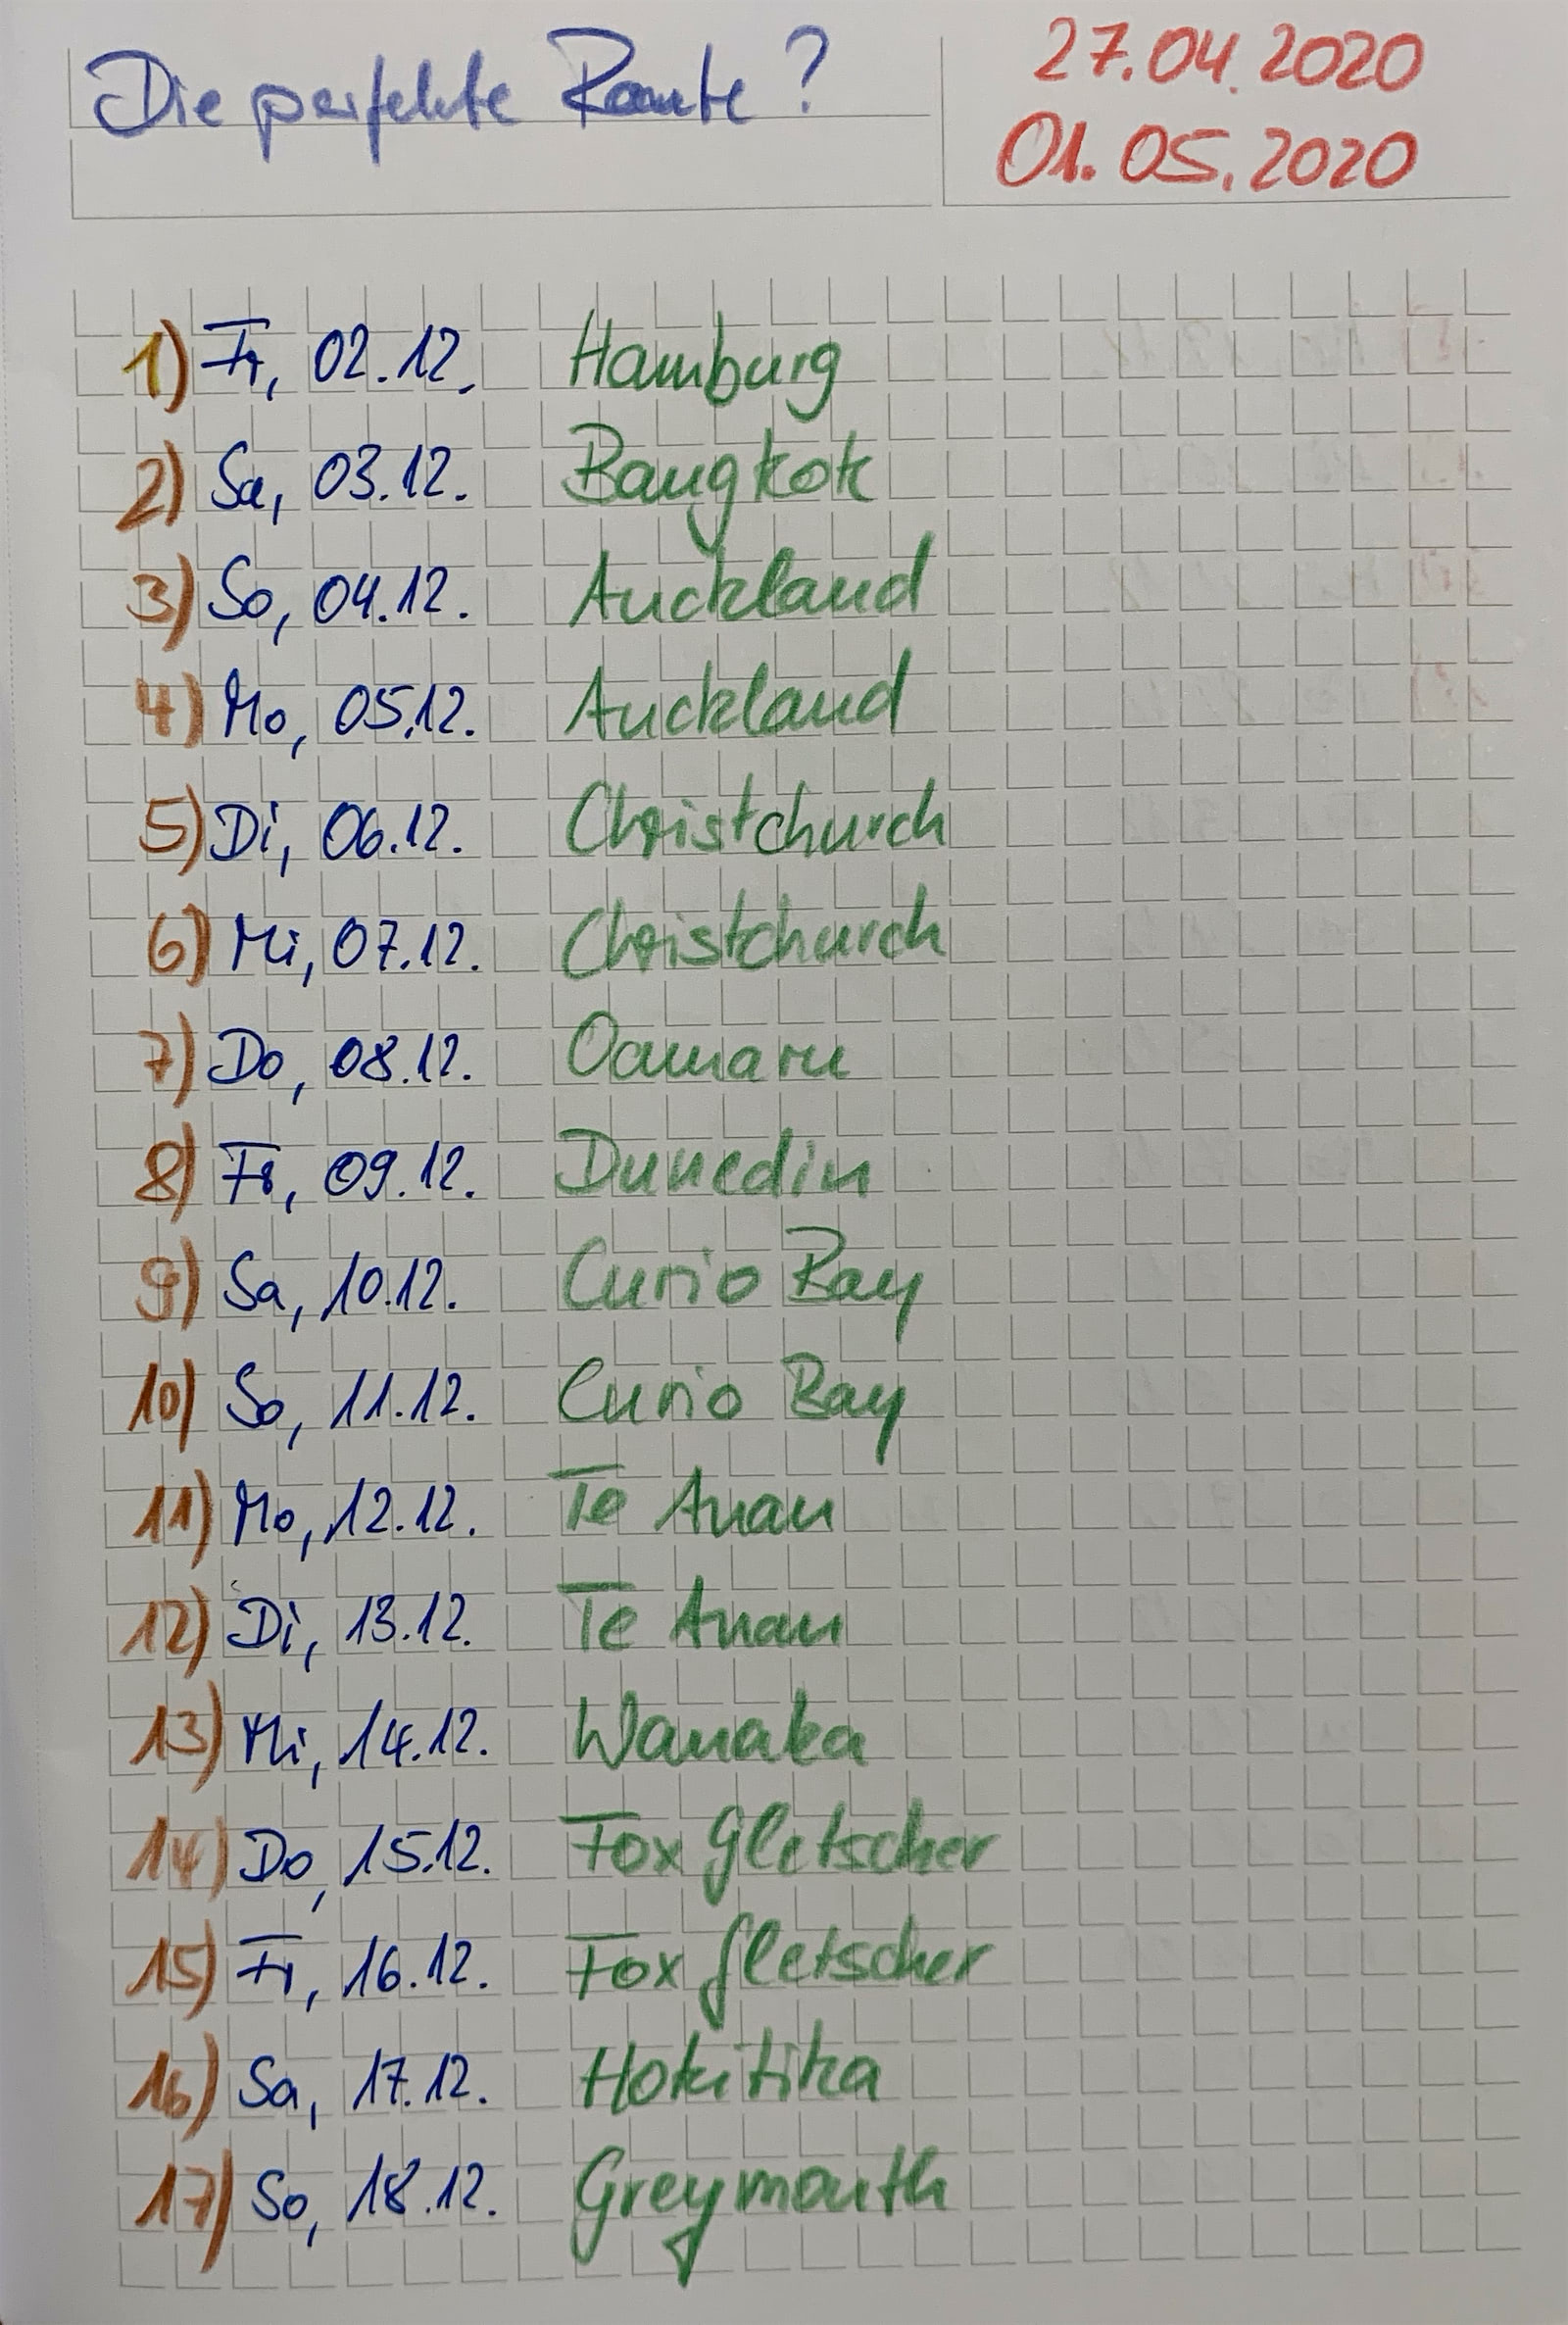 Die perfekte Route?
27.04.2020
01.05.2020
1) Fr, 02.12. Hamburg
2) Sa, 03.12. Bangkok
3) So, 04.12. Auckland
4) Mo, 05.12. Auckland
5) Di, 06.12. Christchurch
6) Mi, 07.12. Christchurch
7) Do, 08.12. Oamaru
8) Fr, 09.12. Dunedin
9) Sa, 10.12. Curio Bay
10) So, 11.12. Curio Bay
11) Mo, 12.12. Te Anau
12) Di, 13.12. Te Anau
13) Mi, 14.12. Wanaka
14) Do, 15.12. Fox Gletscher
15) Fr, 16.12. Fox Gletscher
16) Sa, 17.12. Hokitika
17) So, 18.12. Greymouth